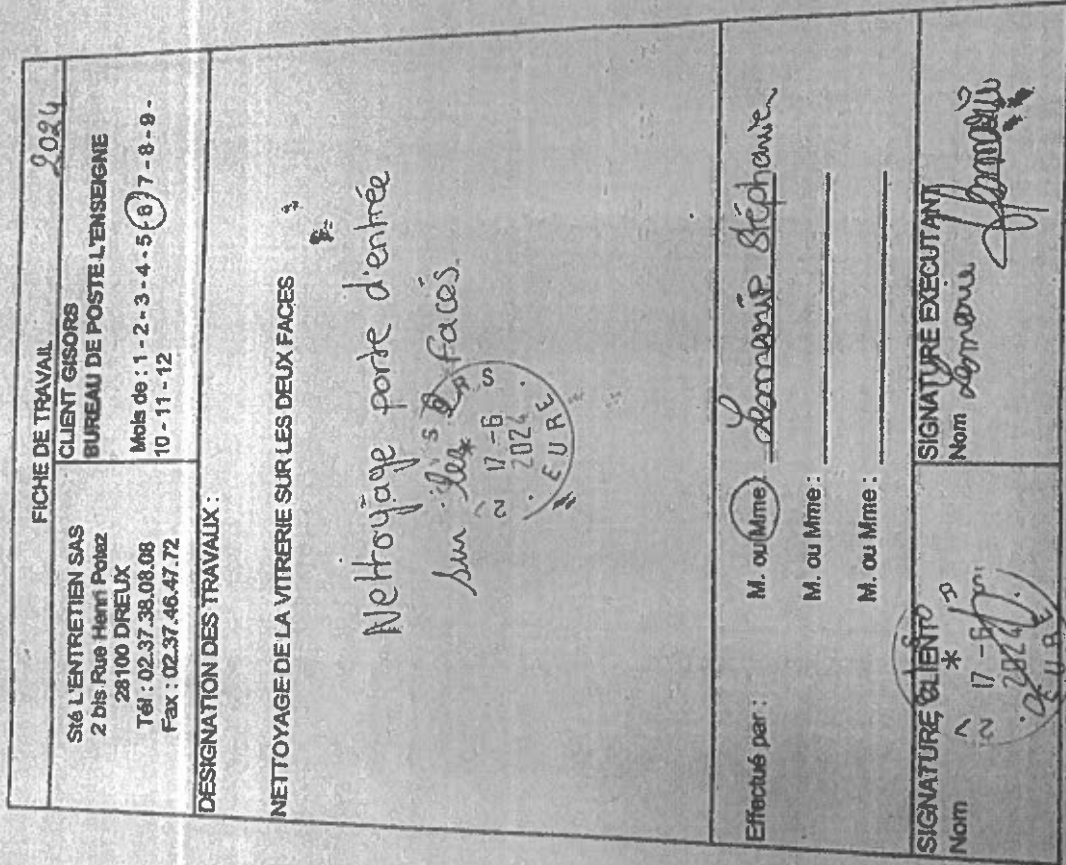 FICHE DE TRAVAIL 2024
Sté L'ENTRETIEN SAS
2 bis Rue Henri Potez
28100 DREUX
Tél : 02.37.38.08.08
Fax : 02.37.46.47.72
CLIENT GISORS
BUREAU DE POSTE L'ENSEIGNE
Mois de : 1 - 2 - 3 - 4 - 5 - 6 - 7 - 8 - 9 -
10 - 11 - 12
DESIGNATION DES TRAVAUX :
NETTOYAGE DE LA VITRERIE SUR LES DEUX FACES
Nettoyage porte d'entrée
sur les 2 faces.
17 -6
2024
EURE
Effectué par : M. ou Mme : Lemarie Stéphanie
M. ou Mme :
M. ou Mme :
SIGNATURE CLIENT
Nom
17 -6
2024
EURE
SIGNATURE EXECUTANT
Nom Lemarie